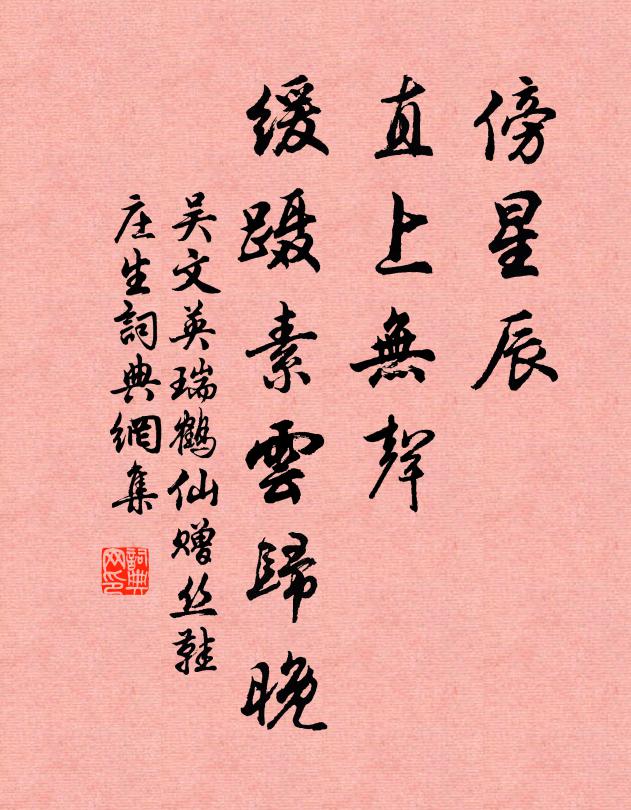 傍星辰
直上無聲
缓蹑素雲歸晚
吴文英瑞鶴仙赠丝鞋
庄生詞典網集
詞典网印